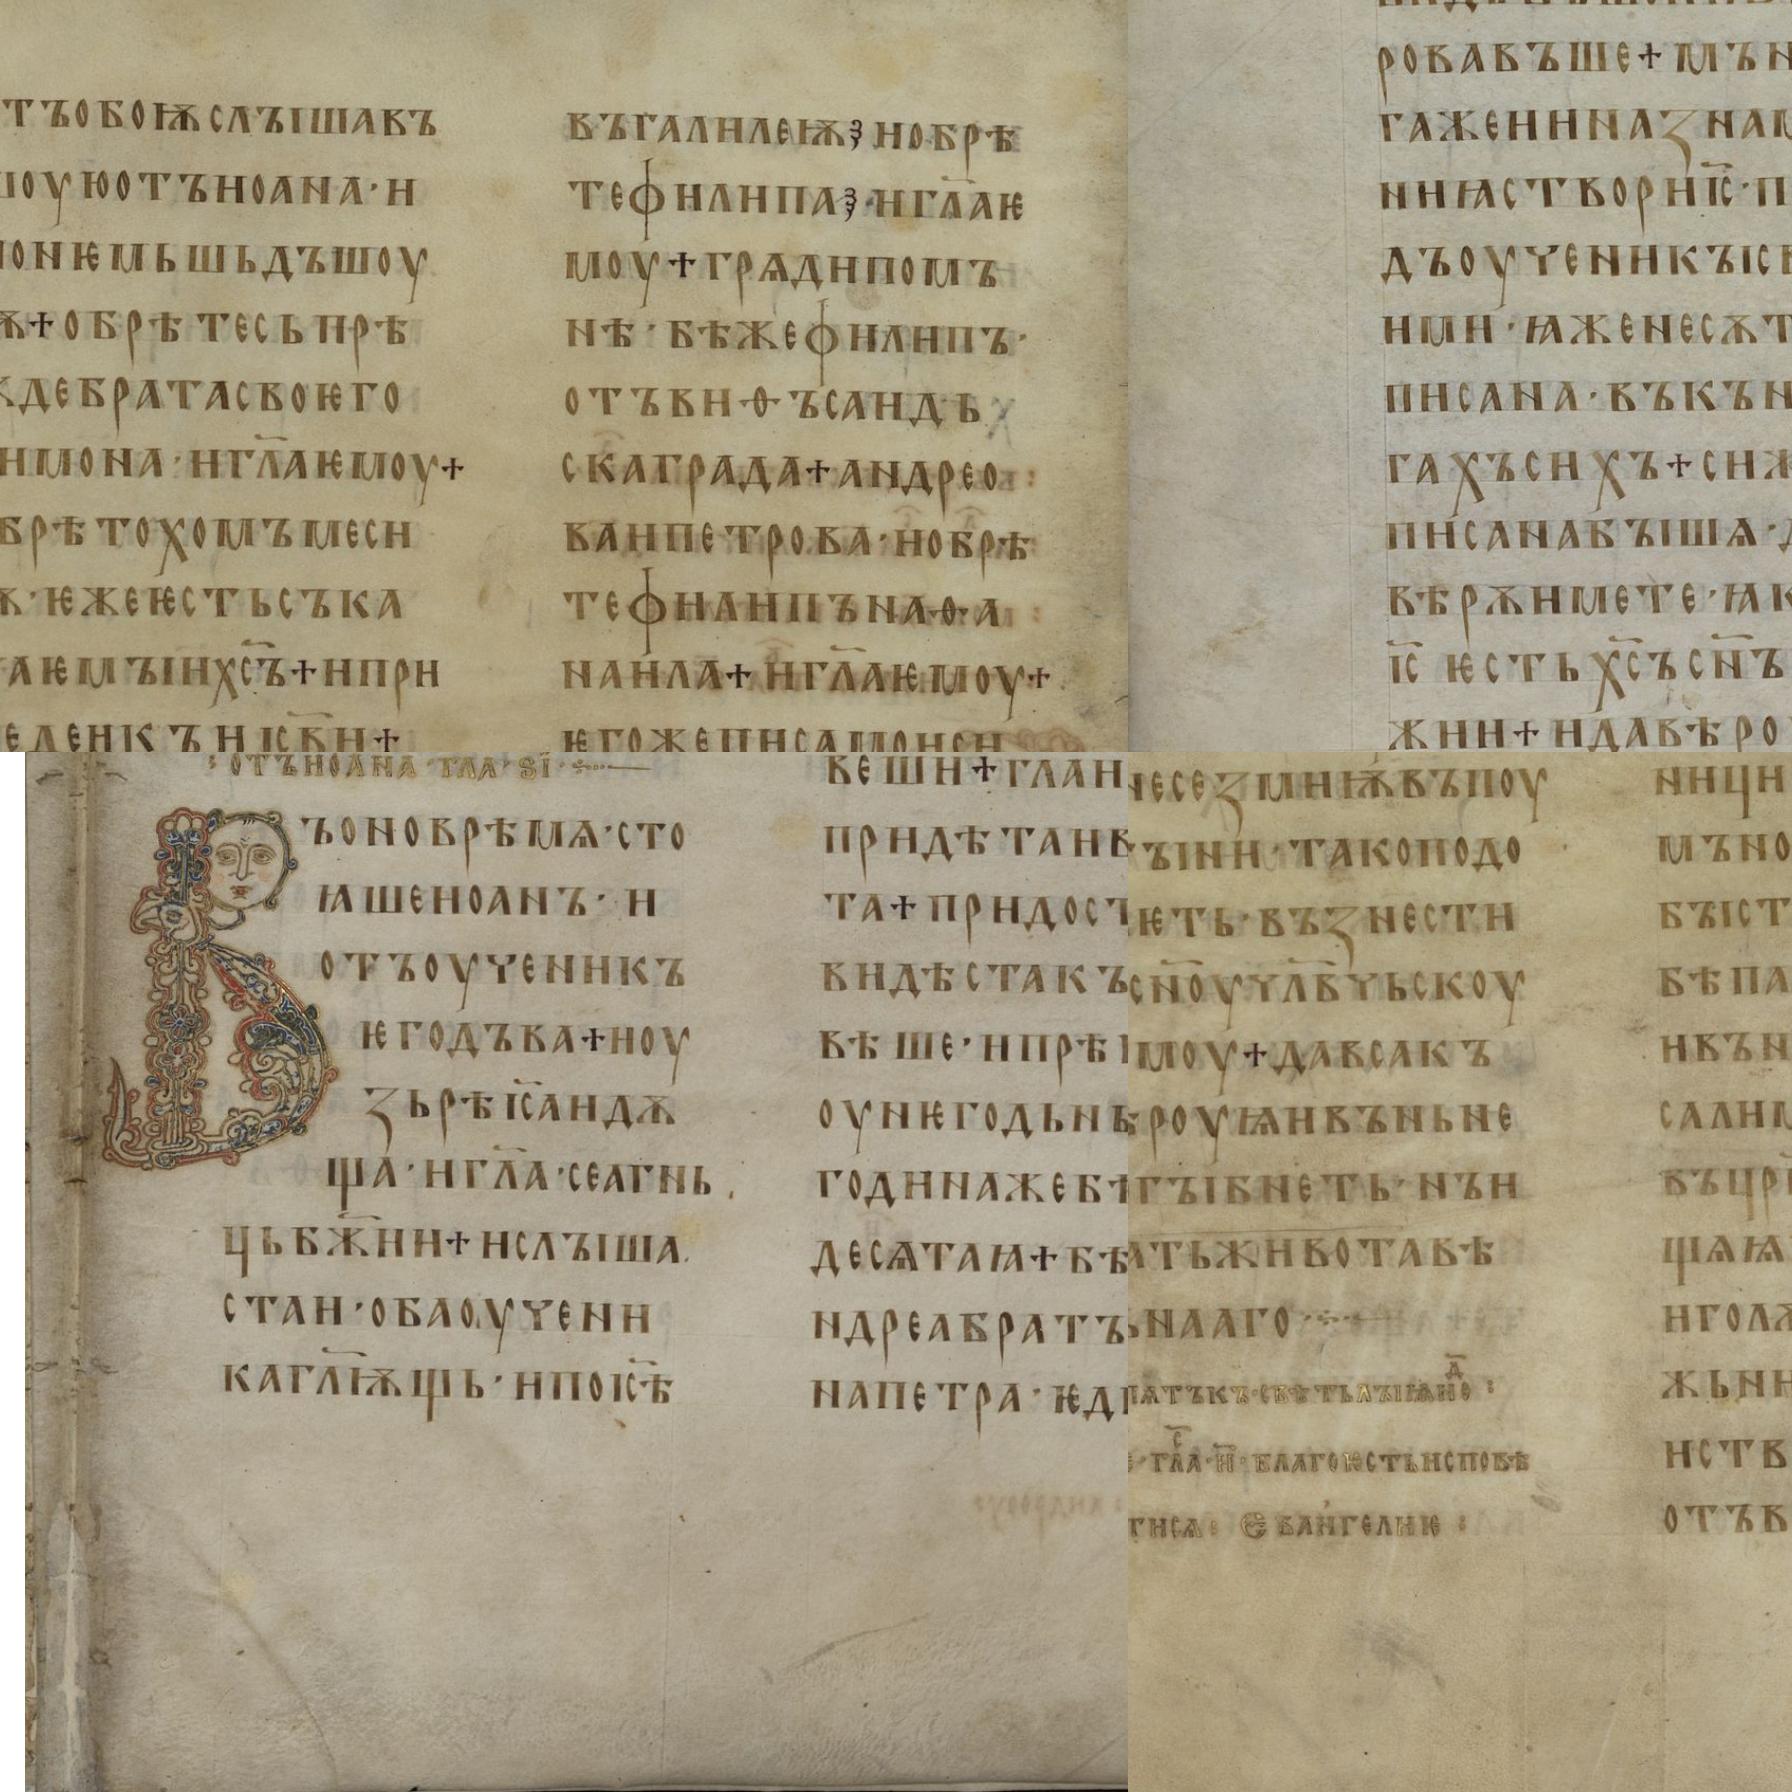 тъобоѭслъішавъ
шоуюотъиоана·и
понѥмьшьдъшоу
ѫ+обрѣтесьпрѣ
ждебратасвоѥго
имона·игл҃аѥмоу+
брѣтохомъмеси
ѭ·ѥжеѥстьсъка
аѥмъіихс҃ъ+ипри
еденкъиіс҃ви+
въгалилеѭꙁиобрѣ
тефилипаꙁ·игл҃аѥ
моу+грѧдипомъ
нѣ·бѣжефилипъ·
отъви·ѳ·ъсаидь
скаграда+андрео
ваипетрова·иобрѣ
тефилипъна·ѳ·а
наила+игл҃аѥмоу+
ѥгожеписамоиси
ровавъше+мън
гажеииназнам
ииꙗствориіс҃·п
дъоученикъісв
ими·ꙗженесѫт
писана·въкън
гахъсихъ+сиж
писанабъішѧ·д
вѣрѫимете·ꙗк
іс҃ ѥстьхс҃ъсн҃ъ
жии+идавѣро
:отъиоана·гла·ѕі·
ъоноврѣмѧ·сто
ꙗшеиоанъ·и
отъоученикъ
ѥгодъва+иоу
зьрѣіс҃аидѫ
ща·игл҃а·сеагнь
цьбж҃ии+ислъіша
стаи·обаоучени
кагл҃ѭщь·ипоіс҃ѣ
веши+глаи
придѣтаив
та+придост
видѣстакъ
вѣше·ипрѣ
оунѥгодьнь
годинажебѣ
десѧтаꙗ+бѣ
ндреабратъ
напетра·ѥд
несезмиѭвъпоу
ъіни·такоподо
ѥть·възнести
сн҃оучлв҃чьскоу
моу+давсакъ
роуѭивъньне
гъібнеть·нън
атьживотавѣ
ьнааго
пѧтъкъ·свѣтьлъіѩнед
гла·и҃·благоѥстьисповѣ
тисѧ: еваигелиѥ:
ницн
мъно
бъіст
бѣпа
ивън
салим
въцр
щѧꙗ
игола
жьни
иств
отъв